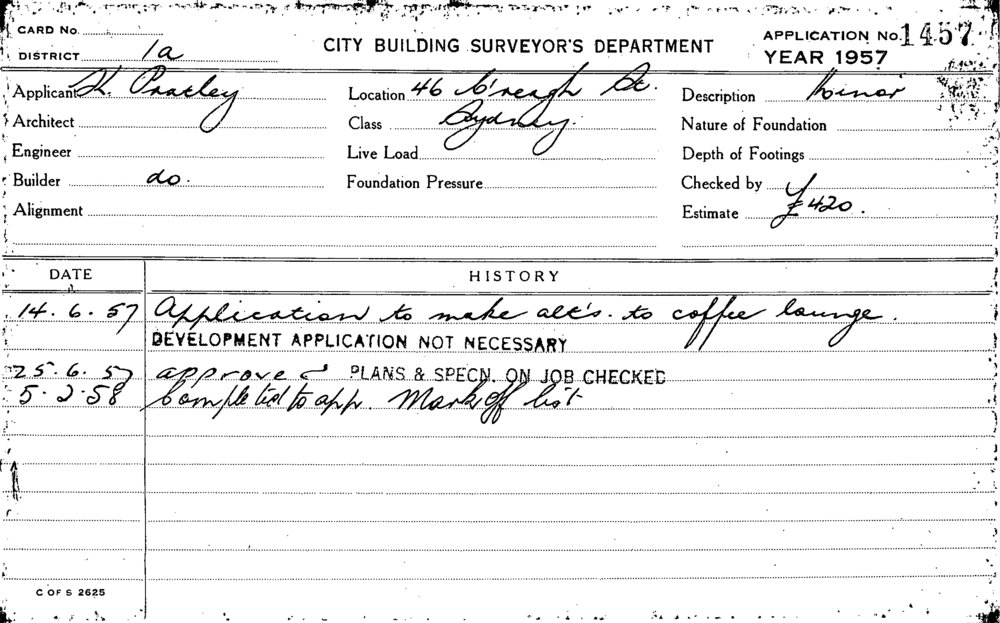 CARD No.
DISTRICT 1a
CITY BUILDING SURVEYOR'S DEPARTMENT
APPLICATION No. 1457
YEAR 1957
Applicant K. Pratley
Location 46 C'reagh St.
Description Minor
Architect
Class Sydney.
Nature of Foundation
Engineer
Live Load
Depth of Footings
Builder do.
Foundation Pressure
Checked by
Alignment
Estimate £420.
DATE HISTORY
14.6.57 Application to make alt's. to coffee lounge.
DEVELOPMENT APPLICATION NOT NECESSARY
25.6.57 approved PLANS & SPECN. ON JOB CHECKED
5.2.58 Completed to app. Mark off list
C OF S 2625